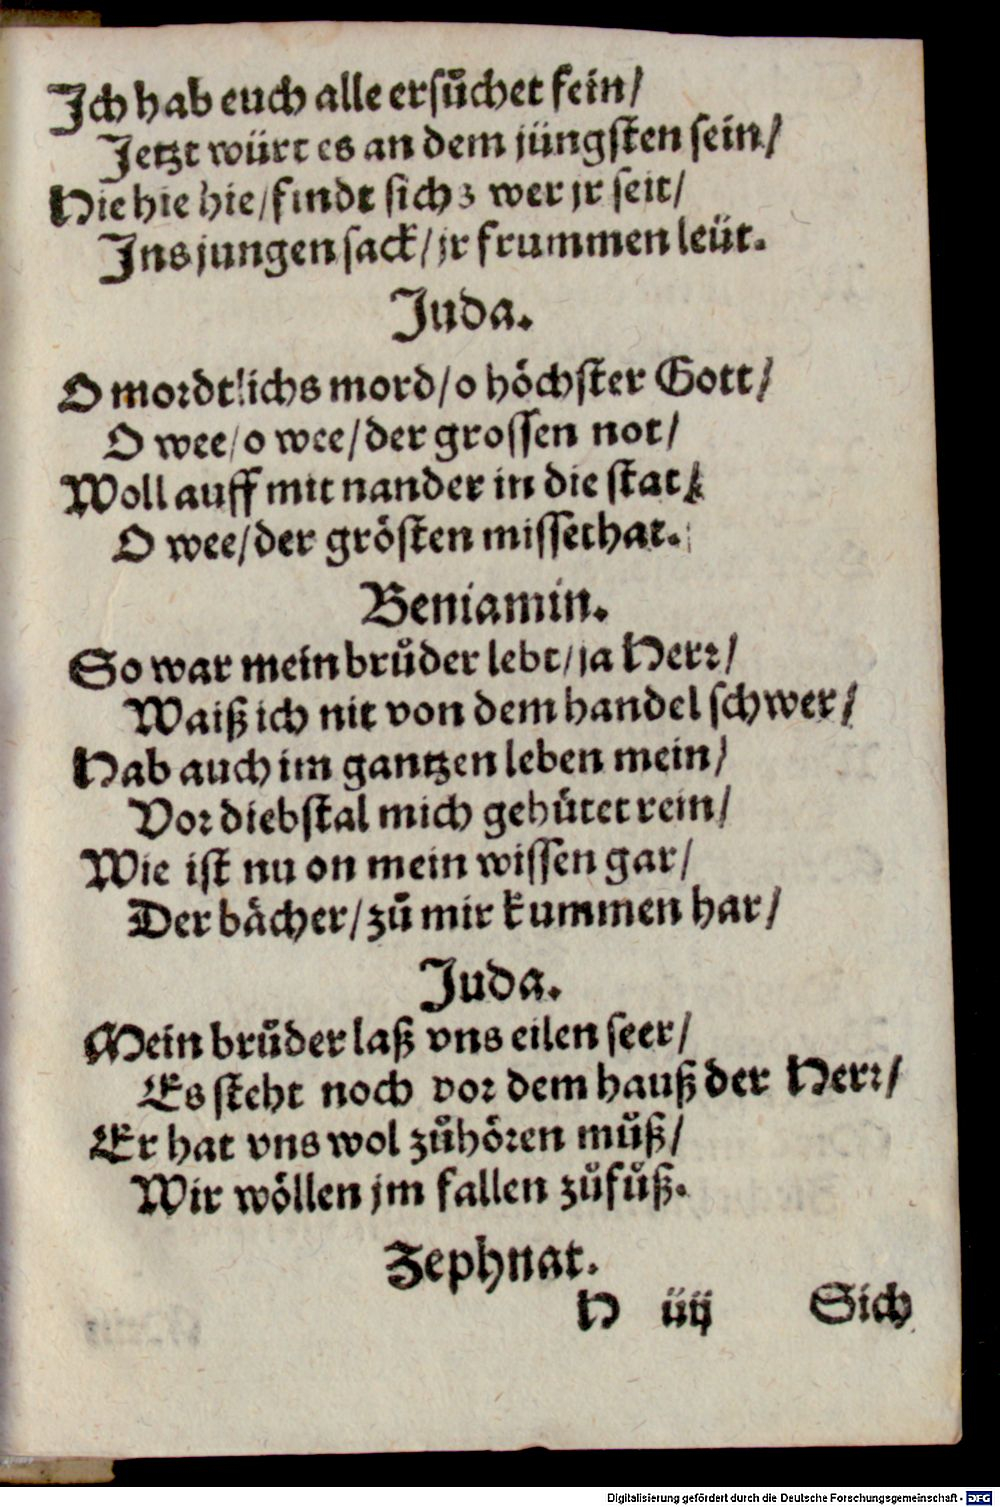 Ich hab euch alle ersůchet fein/
Jetzt würt es an dem jüngsten sein/
Hie hie hie/ findt sichs wer jr seit/
Ins jungen sack/ jr frummen leüt.
Juda.
O mordtlichs mord/ o höchster Gott/
O wee/ o wee/ der grossen not/
Woll auff mit nander in die stat/
O wee/ der grösten missethat.
Beniamin.
So war mein brůder lebt/ ja Herr/
Waiß ich nit von dem handel schwer/
Hab auch im gantzen leben mein/
Vor diebstal mich gehütet rein/
Wie ist nu on mein wissen gar/
Der bächer/ zů mir kummen har/
Juda.
Mein brůder laß vns eilen seer/
Es steht noch vor dem hauß der Herr/
Er hat vns wol zůhören můß/
Wir wöllen jm fallen zůfůß.
Zephnat.
H iiij Sich
Digitalisierung gefördert durch die Deutsche Forschungsgemeinschaft - DFG